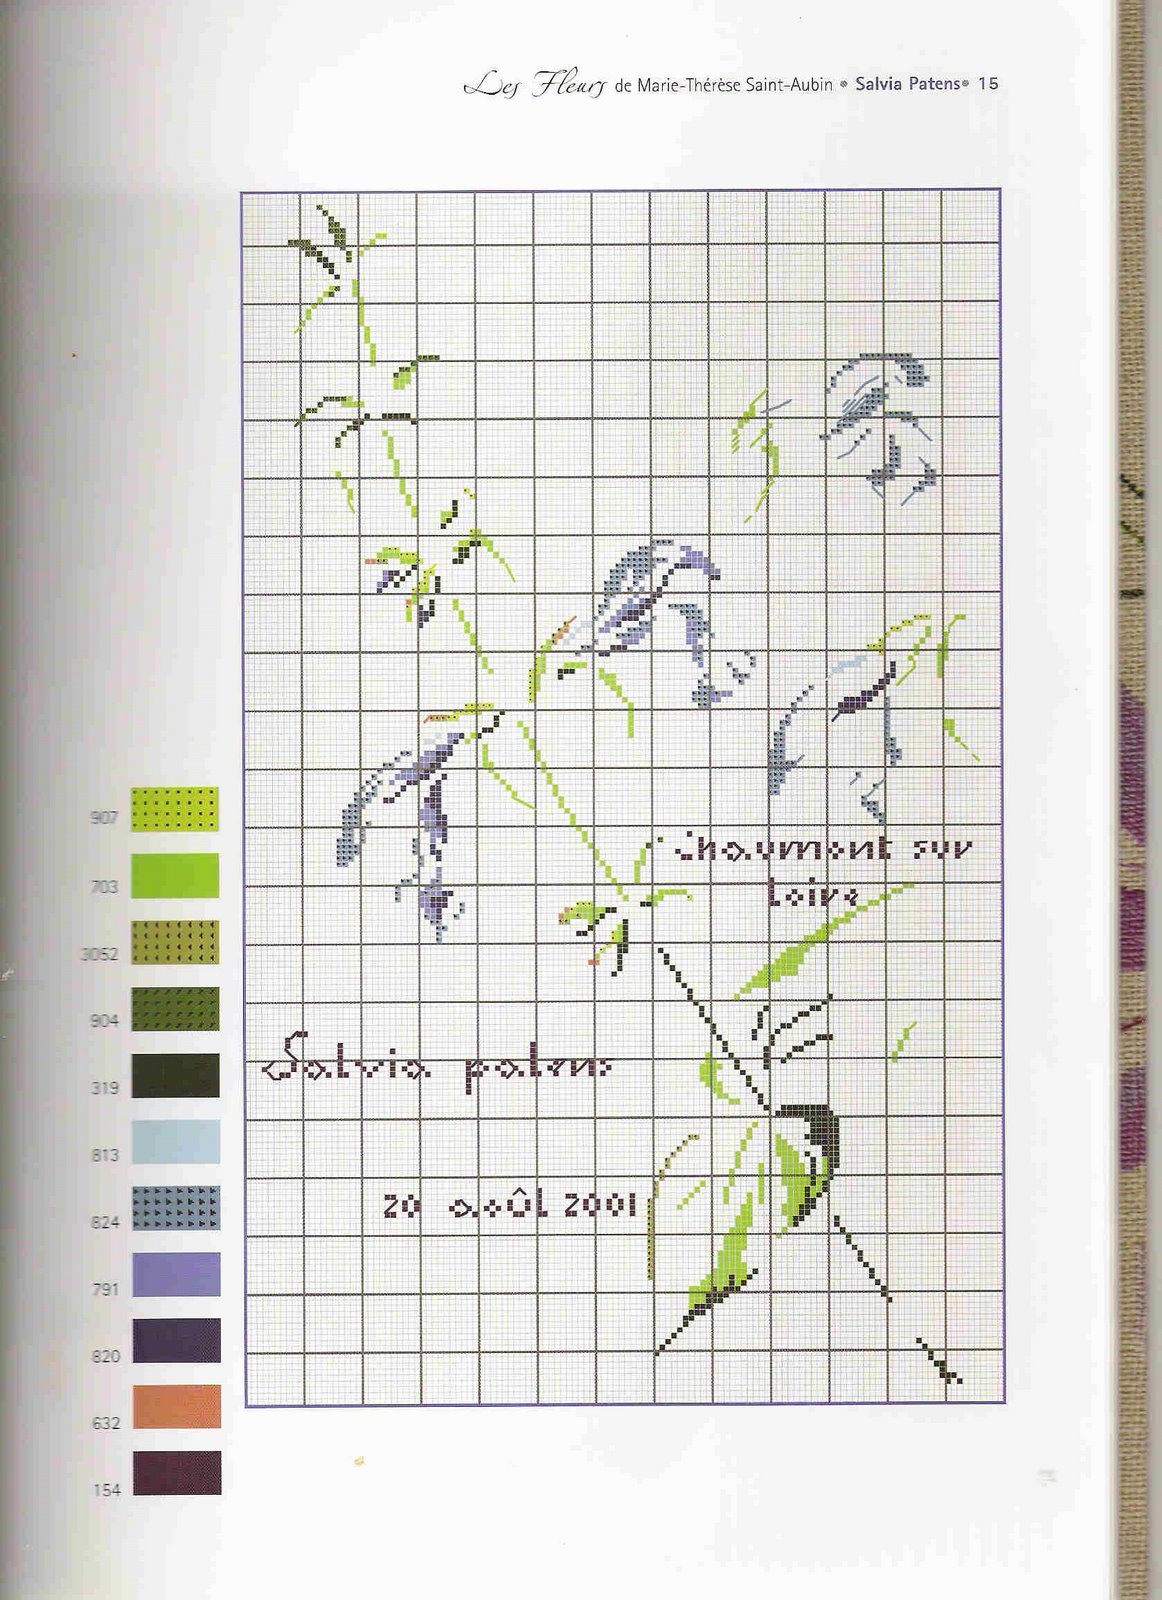 Les Fleurs de Marie-Thérèse Saint-Aubin • Salvia Patens • 15
Chaumont sur
Loire
Salvia patens
20 août 2001
907
703
3052
904
319
813
824
791
820
632
154